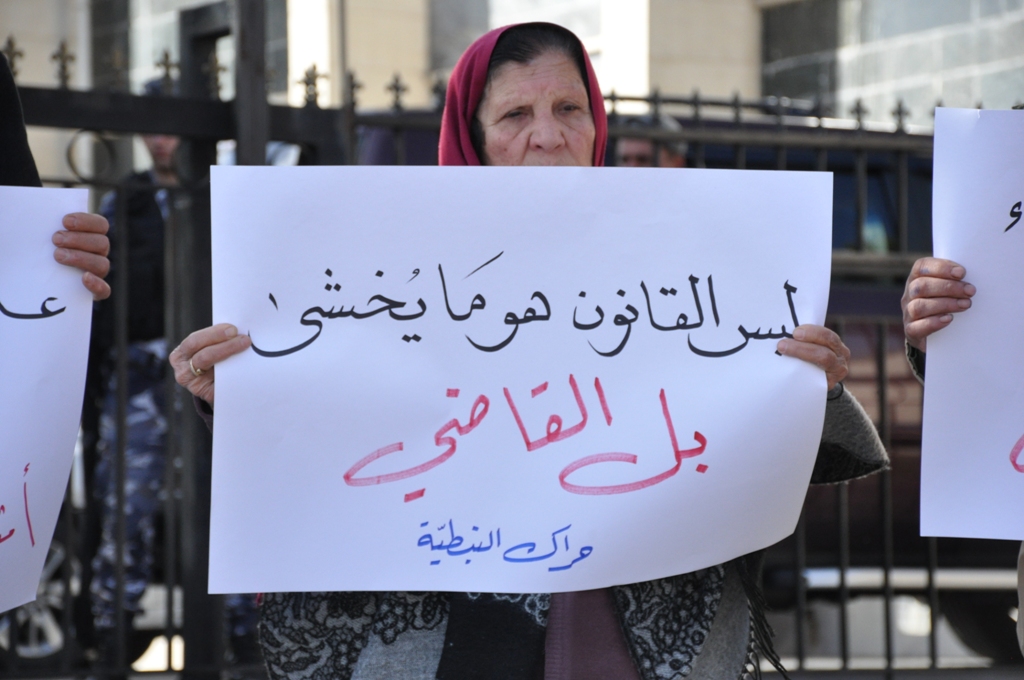 ليس القانون هو مَا يُخشى
بل القاضي
حراك النبطيّة
ء
علـ